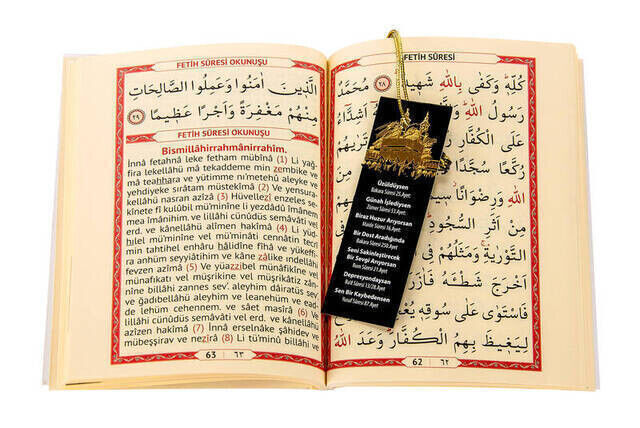 FETİH SÛRESİ OKUNUŞU
الَّذِينَ اٰمَنُوا وَعَمِلُوا الصَّالِحَاتِ
مِنْهُمْ مَغْفِرَةً وَاَجْرًا عَظِيمًا ﴿٢٩﴾
FETİH SÛRESİ OKUNUŞU
Bismillâhirrahmânirrahîm.
İnnâ fetahnâ leke fetham mübînâ (1) Li yağ-
fira lekellâhü mâ tekaddeme min zembike ve
mâ teahhara ve yütimme ni'metehû aleyke ve
yehdiyeke sırâtam müstekîmâ (2) Ve yensura-
kellâhü nasran azîzâ (3) Hüvellezî enzeles se-
kînete fî kulûbil mü'minîne li yezdâdû îmânem
mea îmânihim. ve lillâhi cünûdüs semâvâti vel
erd. ve kânellâhü alîmen hakîmâ (4) Li yüd-
hılel mü'minîne vel mü'minâti cennâtin tecrî
min tahtihel enhâru hâlidîne fîhâ ve yükeffi-
ra anhüm seyyiâtihim ve kâne zâlike ındellâhi
fevzen azîmâ (5) Ve yüazzibel münâfikîne vel
münâfikâti vel müşrikîne vel müşrikâtiz zânnî-
ne billâhi zannes sev'. aleyhim dâiratüs sev'
ve ğadıbellâhü aleyhim ve leanehüm ve ead-
de lehüm cehennem. ve sâet masîrâ (6) Ve
lillâhi cünûdüs semâvâti vel erd. ve kânellâhü
azîzen hakîmâ (7) İnnâ erselnâke şâhidev ve
mübeşşirav ve nezîrâ (8) Li tü'minû billâhi ve
63 ٦٣
FETİH SÛRESİ
كُلِّهِ وَكَفٰى بِاللّٰهِ شَهِيدًا ﴿٢٨﴾ مُحَمَّدٌ
رَسُولُ اللّٰهِ اَشِدَّاءُ
عَلَى الْكُفَّارِ تَرٰيهُمْ
رُكَّعًا سُجَّدًا
اللّٰهِ وَرِضْوَانًا
مِنْ اَثَرِ السُّجُودِ
التَّوْرٰيةِ وَمَثَلُهُمْ فِي
اَخْرَجَ شَطْـَٔهُ فَاٰزَرَهُ
فَاسْتَوٰى عَلٰى سُوقِهِ يُعْجِبُ
لِيَغِيظَ بِهِمُ الْكُفَّارَ وَعَدَ اللّٰهُ
62 ٦٢
Üzüldüysen
Bakara Sûresi 25.Ayet
Günah İşlediysen
Zümer Sûresi 53.Ayet
Biraz Huzur Arıyorsan
Maide Sûresi 16.Ayet
Bir Dost Aradığında
Bakara Sûresi 250.Ayet
Seni Sakinleştirecek
Bir Sevgi Arıyorsan
Rum Sûresi 21.Ayet
Depresyondaysan
Ra'd Sûresi 13/28.Ayet
Sen Bir Kaybedensen
Yusuf Sûresi 87.Ayet